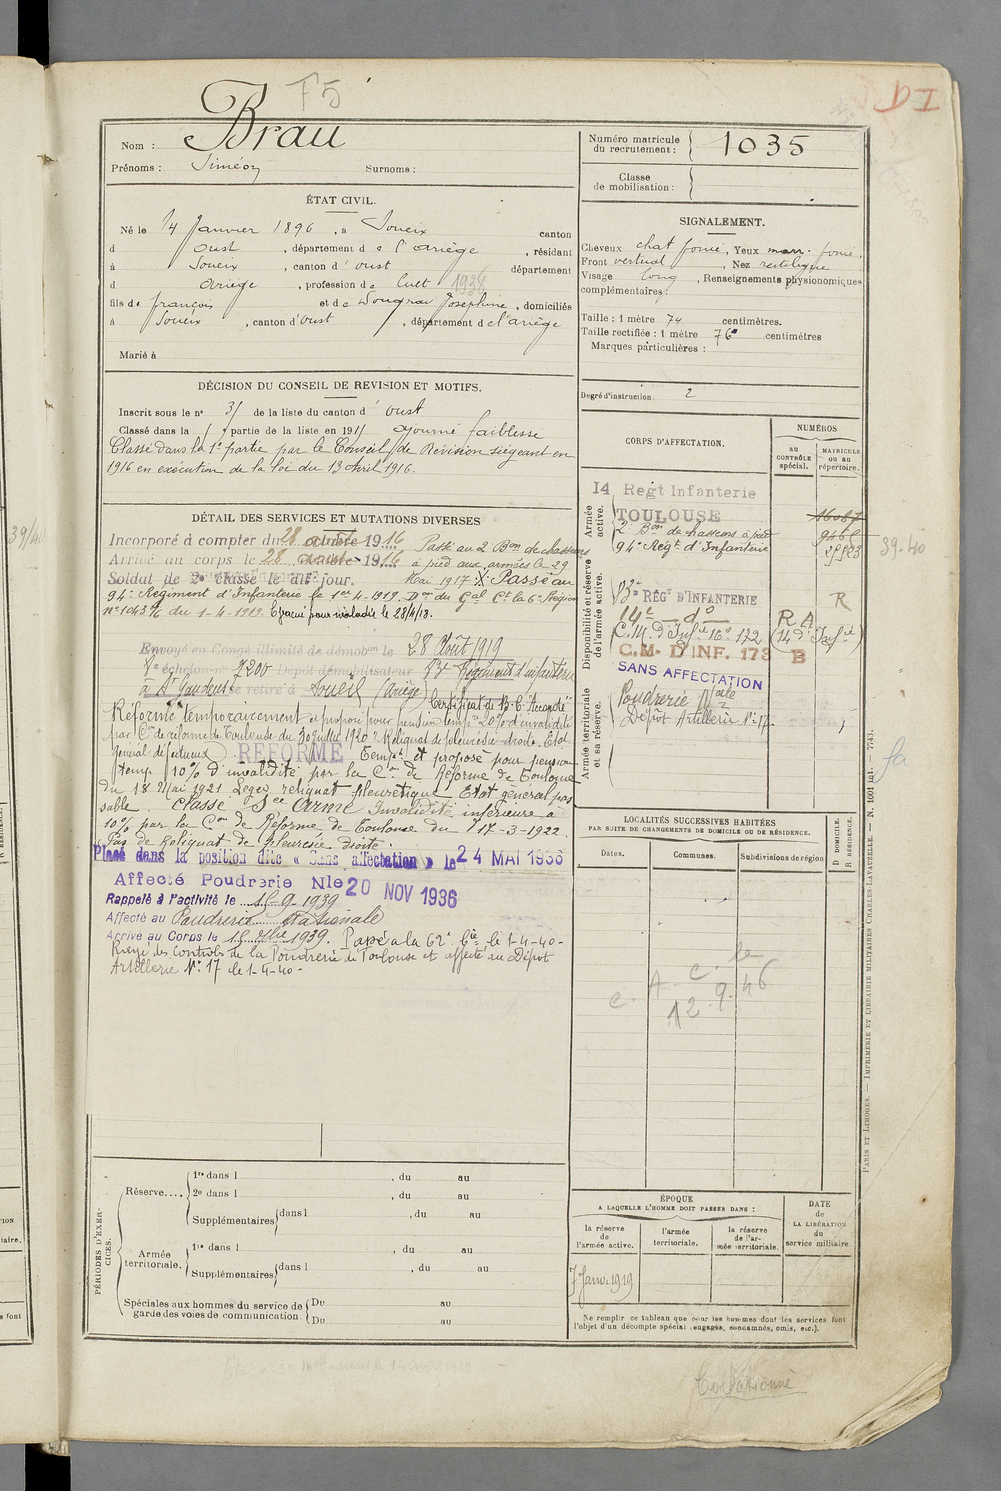 F5
D I
Nom : Brau
Prénoms : Siméon Surnoms :
Numéro matricule du recrutement : 1035
Classe de mobilisation :
ÉTAT CIVIL.
Né le 14 Janvier 1896, à Soueix canton
d Oust, département de l'Ariège, résidant
à Soueix, canton d'Oust département
d Ariège, profession de Cult 1938
fils de François et de Josephine, domiciliés
à Soueix, canton d'Oust, département de l'Ariège
Marié à
SIGNALEMENT.
Cheveux chat foncé, Yeux marr. foncé.
Front vertical, Nez rectiligne
Visage long, Renseignements physionomiques
complémentaires :
Taille : 1 mètre 74 centimètres.
Taille rectifiée : 1 mètre 76 centimètres
Marques particulières :
Degré d'instruction. 2
DÉCISION DU CONSEIL DE REVISION ET MOTIFS.
Inscrit sous le n° 31 de la liste du canton d'Oust
Classé dans la partie de la liste en 191 ajourné faiblesse
Classé dans la 1e partie par le Conseil de Révision siégeant en
1916 en exécution de la loi du 13 Avril 1916.
DÉTAIL DES SERVICES ET MUTATIONS DIVERSES
Incorporé à compter du 28 octobre 1916
Arrivé au corps le 28 octobre 1916
Soldat de 2e classe le dit jour.
Passé au 2 Bon de chasseurs
à pied aux armées le 29
Mai 1917. Passé au
94e Régiment d'Infanterie le 1er-4-1919. Don du Gal Ct la 6e Région
n° 1043 du 1-4-1919. Evacué pour maladie le 28/4/18.
Envoyé en Congé illimité de démob le 28 Août 1919
échelon n° 7200 Dépôt démobilisateur 13e Régiment d'infanterie
à St Gaudens se retire à Soueix (Ariège) Certificat de B.C. "Accordé"
Réformé temporairement et proposé pour pension temp. 20% d'invalidité
par Con de réforme de Toulouse du 30 Juillet 1920. Reliquat de pleurésie droite. Etat
général défectueux. REFORME Tempt et proposé pour pension
temp. 10% d'invalidité par la Con de Réforme de Toulouse
du 18 Mai 1921 Leger reliquat pleurétique Etat général pas
sable. Classé Sce Armé Invalidité inférieure à
10% par la Con de Réforme de Toulouse du 17-3-1922.
Pas de Reliquat de pleurésie droite.
Placé dans la position dite « Sans affectation » le 24 MAI 1936
Affecté Poudrerie Nle 20 NOV 1936
Rappelé à l'activité le 15-9-1939
Affecté au Poudrerie Nationale
Arrivé au Corps le 15 7bre 1939. Passé à la 62e Cie le 1-4-40-
Rayé des Controles de la Poudrerie de Toulouse et affecté au Dépot
Artillerie N° 17 le 1-4-40-
CORPS D'AFFECTATION.
NUMÉROS
au CONTRÔLE spécial.
MATRICULE ou au répertoire.
Armée active.
14 Régt Infanterie
TOULOUSE
2e Bon de chasseurs à pied
94e Régt d'Infanterie
Disponibilité et réserve de l'armée active.
RÉGt D'INFANTERIE
14e do
C.M. d'Infie 16e 172
R A
(14 d'Infie)
R
C.M. D'INF. 173 B
SANS AFFECTATION
Armée territoriale et sa réserve.
Poudrerie Nale
Dépôt Artillerie N° 17.
39-40
39/40
LOCALITÉS SUCCESSIVES HABITÉES
PAR SUITE DE CHANGEMENTS DE DOMICILE OU DE RÉSIDENCE.
Dates. Communes. Subdivisions de région
D DOMICILE. R RÉSIDENCE.
12 9 46
PÉRIODES D'EXERCICES.
Réserve.... 1re dans l , du au
2e dans l , du au
Supplémentaires dans l , du au
Armée territoriale. 1re dans l , du au
Supplémentaires dans l , du au
Spéciales aux hommes du service de garde des voies de communication. Du au
Du au
ÉPOQUE
A LAQUELLE L'HOMME DOIT PASSER DANS :
la réserve de l'armée active.
l'armée territoriale.
la réserve de l'armée territoriale.
DATE de LA LIBÉRATION du service militaire.
Janv. 1919
Ne remplir ce tableau que pour les hommes dont les services font
l'objet d'un décompte spécial (engagés, condamnés, omis, etc.).
PARIS ET LIMOGES. — IMPRIMERIE ET LIBRAIRIE MILITAIRES CHARLES-LAVAUZELLE. — N° 1001 int. — 7743.
Collationné